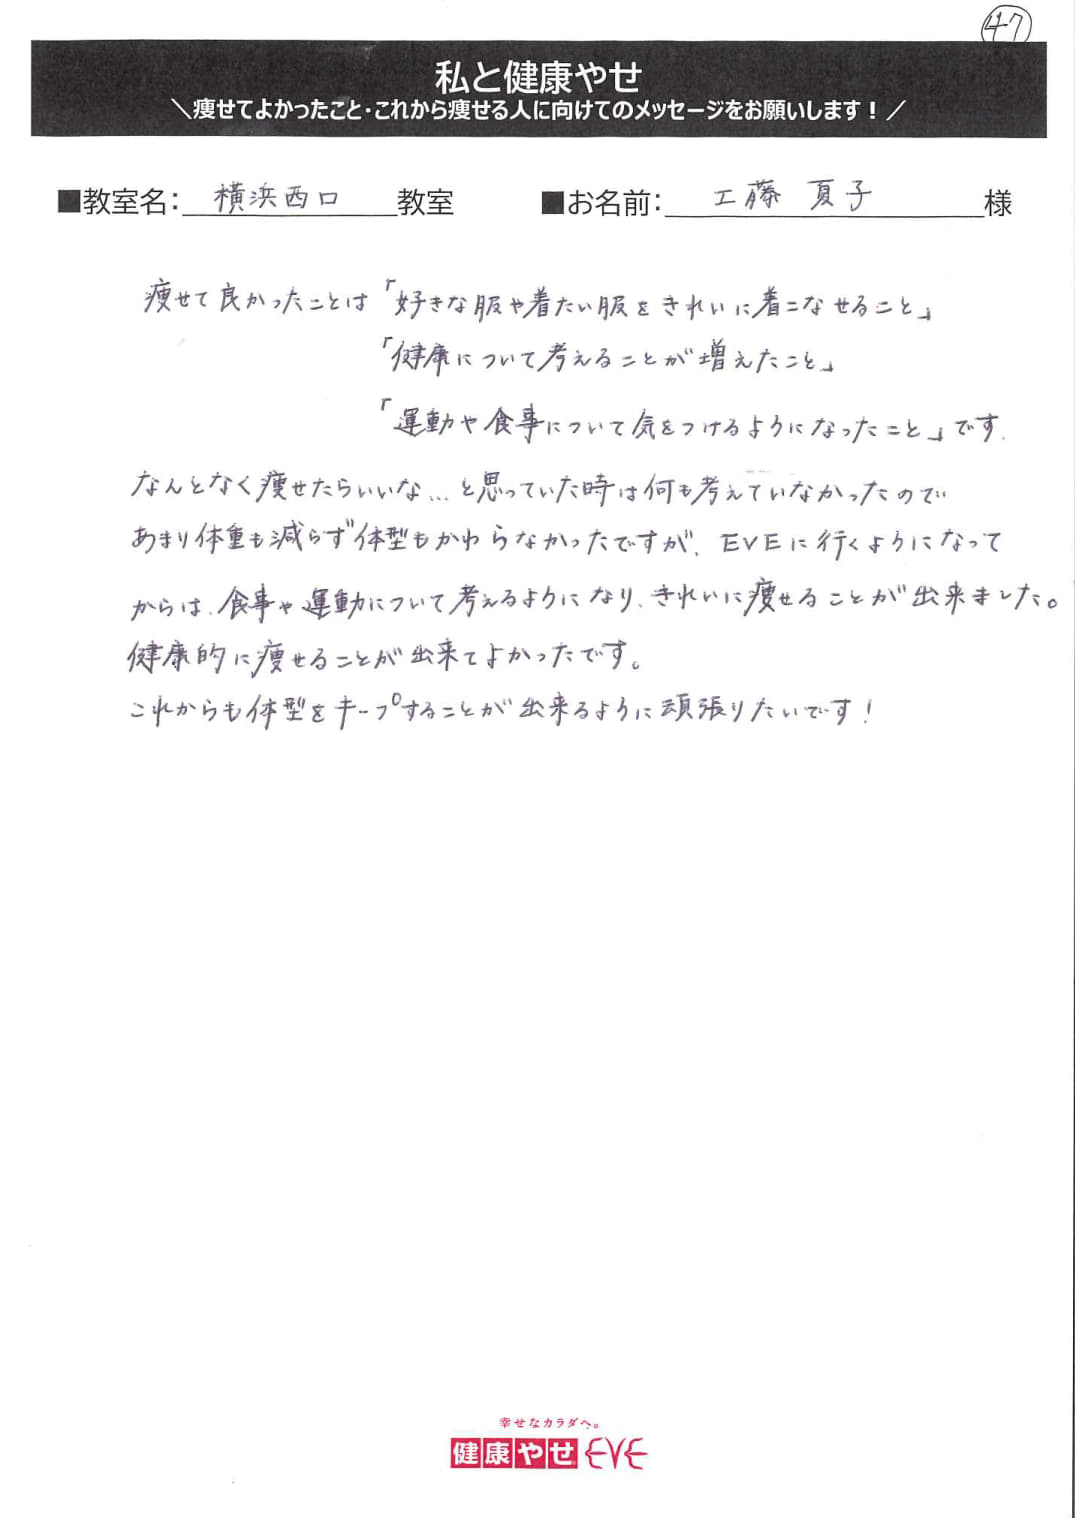 47
私と健康やせ
＼痩せてよかったこと・これから痩せる人に向けてのメッセージをお願いします！／
■教室名： 横浜西口 教室 ■お名前： 工藤 夏子 様
痩せて良かったことは「好きな服や着たい服をきれいに着こなせること」
「健康について考えることが増えたこと」
「運動や食事について気をつけるようになったこと」です.
なんとなく痩せたらいいな…と思っていた時は何も考えていなかったので
あまり体重も減らず体型もかわらなかったですが、EVEに行くようになって
からは、食事や運動について考えるようになり、きれいに痩せることが出来ました。
健康的に痩せることが出来てよかったです。
これからも体型をキープすることが出来るように頑張りたいです！
幸せなカラダへ。
健康やせ EVE